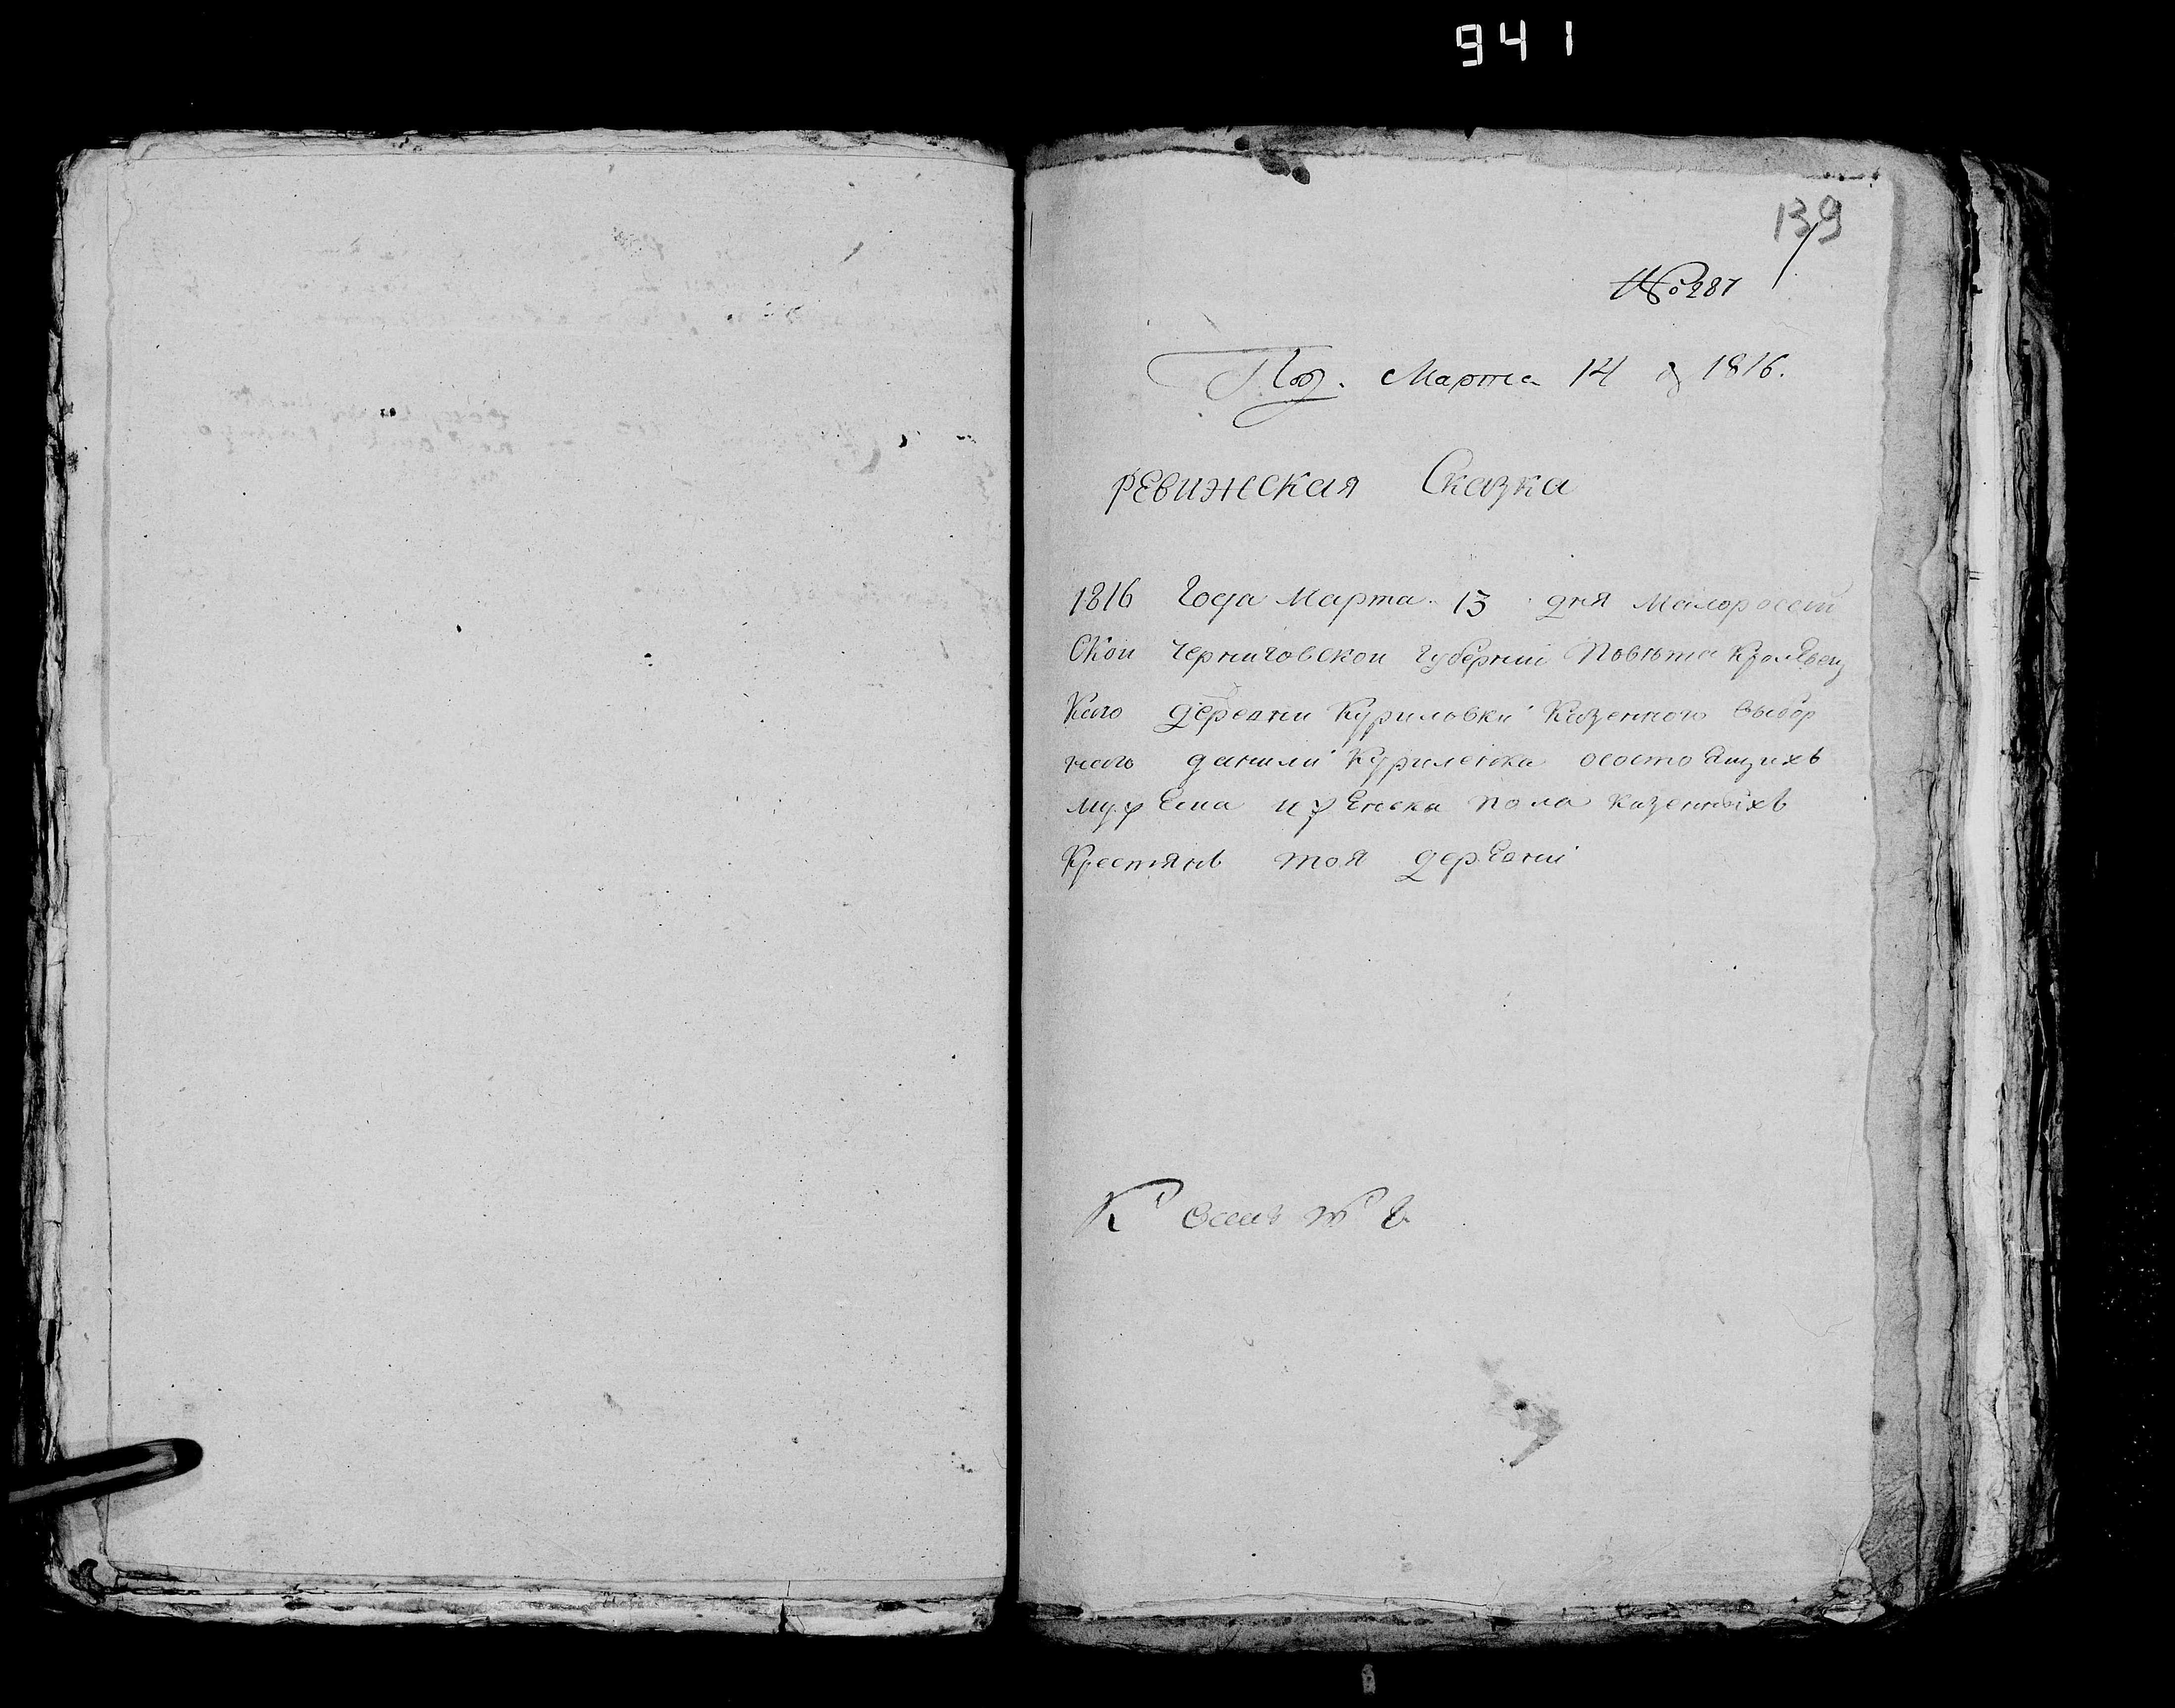 941
139
№ 287
Под. Марта 14 д 1816.
РЕвижская Сказка
1816 Года Марта 13 дня Малоросеій
Скои Черниговской Губерніи Повѣта Кролевец
Каго деревни Куриловки Казенного выбор
наго данили Куриленка осостоящихъ
мужеска иженска пола казенныхъ
Крестянъ тоя деревни